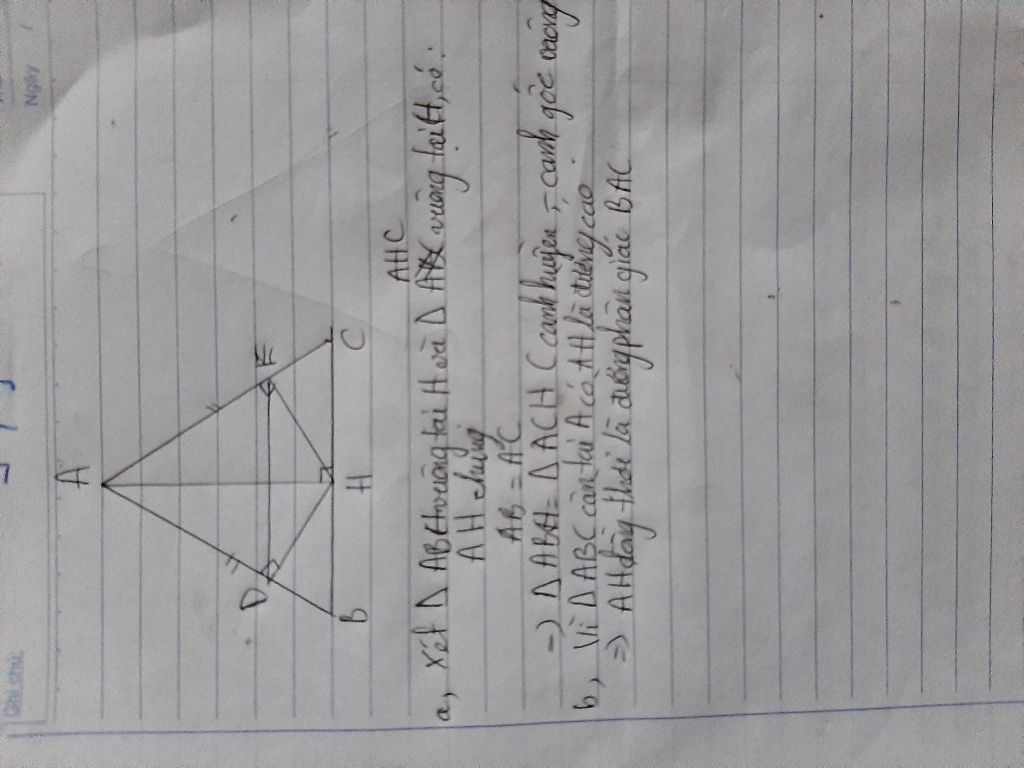 Ghi chú
Ngày
A
D
E
B
H
C
AHC
a, Xét Δ ABH vuông tại H và Δ vuông tại H, có:
AH chung
AB = AC
=> Δ ABH = Δ ACH (cạnh huyền - cạnh góc vuông
b, Vì Δ ABC cân tại A có AH là đường cao
=> AH đồng thời là đường phân giác BAC